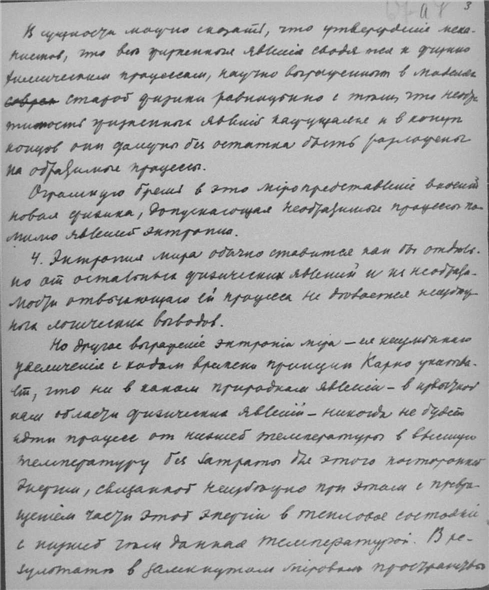 3
В сущности можно сказать, что утверждение меха-
нистов, что все жизненные явления сводятся к физико
химическим процессам, научно выраженным в
старой физики равноценно с тем, что необра-
тимость жизненных явлений кажущаяся и в конце
концов они должны без остатка быть разложены
на обратимые процессы.
Огромную брешь в это миропредставление вносит
новая физика, допускающая необратимые процессы по-
мимо явлений энтропии.
4. Энтропия мира обычно ставится как бы отдель-
но от остальных физических явлений и из необрати-
мости отвечающего ей процесса не делается
логических выводов.
Но другое выражение энтропии міра – ея неуклонное
увеличение с ходом времени принцип Карно указыва-
ет, что ни в каком природном явлении – в
нам области физических явлений – никогда не будет
идти процесс от низшей температуры в высшую
температуру без затраты для этого посторонней
энергии, связанной неизбежно при этом с превра-
щением части этой энергии в тепловое состояние
с низшей чем данная температурой. В ре-
зультате в замкнутом мировом пространстве